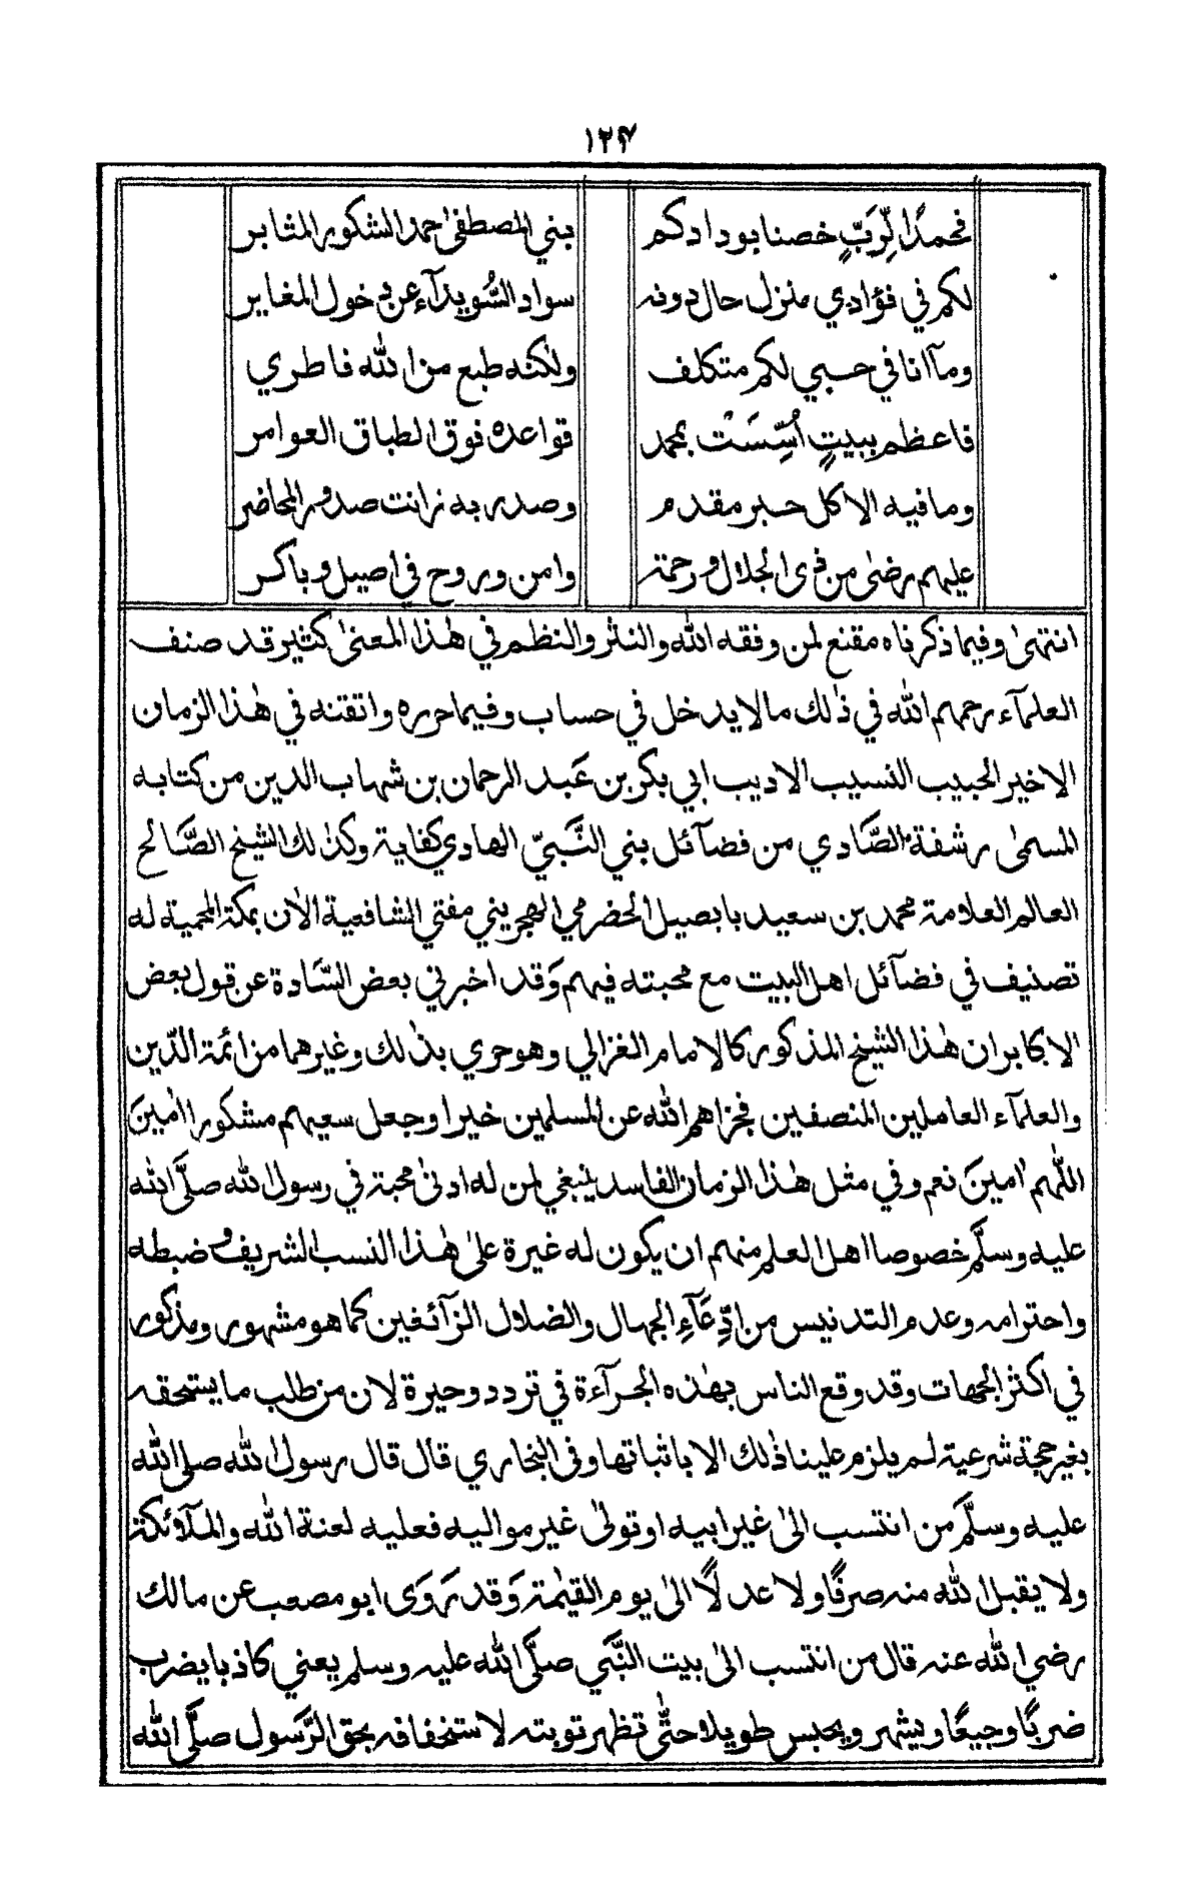 ١٢٤
فحمدًا لِّرَبٍّ خصنا بودادكم بني المصطفىٰ حمد الشكور المثابر
لكم في فؤادي منزل حال دونه سواد السُّويدآء عن دخول المغاير
ومآ انا في حبي لكم متكلف ولٰكنه طبع من الله فاطري
فاعظم ببيتٍ اُسِّسَتْ بمحمد قواعده فوق الطباق العوامر
وما فيه الا كل حبر مقدم وصدر به زانت صدور المحاضر
عليهم رضىٰ من ذي الجلال ورحمة وامن وروح في اصيل وباكر
انتهىٰ وفيما ذكرناه مقنع لمن وفقه الله والنثر والنظم في هٰذا المعنىٰ كثير قد صنف
العلمآء رحمهم الله في ذٰلك ما لا يدخل في حساب وفيما حرره واتقنه في هٰذا الزمان
الاخير الحبيب النسيب الاديب ابي بكر بن عَبد الرحمان بن شهاب الدين من كتابه
المسمىٰ رشفة الصَّادي من فضآئل بني النَّبيّ الهادي كفاية وكذٰلك الشيخ الصَّالح
العالم العلامة محمد بن سعيد بابصيل الحضرمي الهجريني مفتي الشافعية الاٰن بمكة المحمية له
تصنيف في فضآئل اهل البيت مع محبته فيهم وَقد اخبرني بعض السَّادة عن قول بعض
الاكابر ان هٰذا الشيخ المذكور كالامام الغزالي وهو حري بذٰلك وغيرهما من ائمة الدّين
والعلمآء العاملين المنصفين فجزاهم الله عن المسلمين خيرا وجعل سعيهم مشكورا اٰمينَ
اللّٰهم اٰمينَ نعم وفي مثل هٰذا الزمان الفاسد ينبغي لمن له ادنىٰ محبة في رسول الله صلَّى الله
عليه وسلَّم خصوصا اهل العلم منهم ان يكون له غيرة علىٰ هٰذا النسب الشريف وضبطه
واحترامه وعدم التدنيس من ادِّعَآءِ الجهال والضلال الزآئغين كما هو مشهور ومذكور
في اكثر الجهات وقد وقع الناس بهٰذه الجرآءة في تردد وحيرة لان من طلب ما يستحقه
بغير حجة شرعية لم يلزم علينا ذٰلك الا باثباتها وفي البخاري قال قال رسول الله صلى الله
عليه وسلَّم من انتسب الىٰ غير ابيه او تولىٰ غير مواليه فعليه لعنة الله والملآئكة
ولا يقبل الله منه صرفًا ولا عدلًا الىٰ يوم القيٰمة وَقد رَوَى ابو مصعب عن مالك
رضي الله عنه قال من انتسب الىٰ بيت النَّبي صلَّى الله عليه وسلم يعني كاذبا يضرب
ضربًا وجيعًا ويشهر ويحبس طويلا حتّٰى تظهر توبته لاستخفافه بحق الرَّسول صلَّى الله